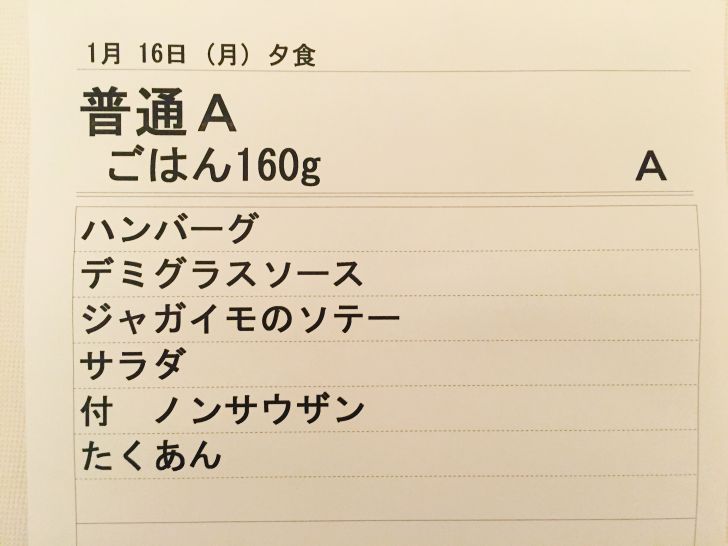 1月 16日 (月) 夕食
普通A
ごはん160g A
ハンバーグ
デミグラスソース
ジャガイモのソテー
サラダ
付 ノンサウザン
たくあん